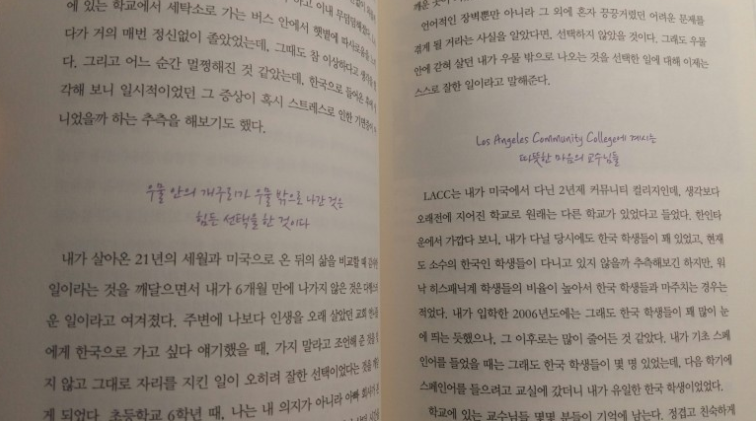 에 있는 학교에서 세탁소로 가는 버스 안에서 햇볕에
다가 거의 매번 정신없이 졸았었는데, 그때도 참 이상하다고
다. 그리고 어느 순간 멀쩡해진 것 같았는데, 한국으로 들어온 후에
각해 보니 일시적이었던 그 증상이 혹시 스트레스로 인한
니었을까 하는 추측을 해보기도 했다.
우물 안의 개구리가 우물 밖으로 나간 것은
힘든 선택을 한 것이다
내가 살아온 21년의 세월과 미국으로 온 뒤의 삶을 비교할 때
일이라는 것을 깨달으면서 내가 6개월 만에 나가지 않은 것은
운 일이라고 여겨졌다. 주변에 나보다 인생을 오래 살았던 교회
에게 한국으로 가고 싶다 얘기했을 때, 가지 말라고 조언해 준
지 않고 그대로 자리를 지킨 일이 오히려 잘한 선택이었다는 것을
게 되었다. 초등학교 6학년 때, 나는 내 의지가 아니라 아빠
언어적인 장벽뿐만 아니라 그 외에 혼자 끙끙거렸던 어려운 문제를
겪게 될 거라는 사실을 알았다면, 선택하지 않았을 것이다. 그래도 우물
안에 갇혀 살던 내가 우물 밖으로 나오는 것을 선택한 일에 대해 이제는
스스로 잘한 일이라고 말해준다.
Los Angeles Community College에 계시는
따뜻한 마음의 교수님들
LACC는 내가 미국에서 다닌 2년제 커뮤니티 컬리지인데, 생각보다
오래전에 지어진 학교로 원래는 다른 학교가 있었다고 들었다. 한인타
운에서 가깝다 보니, 내가 다닐 당시에도 한국 학생들이 꽤 있었고, 현재
도 소수의 한국인 학생들이 다니고 있지 않을까 추측해보긴 하지만, 워
낙 히스패닉계 학생들의 비율이 높아서 한국 학생들과 마주치는 경우는
적었다. 내가 입학한 2006년도에는 그래도 한국 학생들이 꽤 많이 눈
에 띄는 듯했으나, 그 이후로는 많이 줄어든 것 같았다. 내가 기초 스페
인어를 들었을 때는 그래도 한국 학생들이 몇 명 있었는데, 다음 학기에
스페인어를 들으려고 교실에 갔더니 내가 유일한 한국 학생이었었다.
학교에 있는 교수님들 몇몇 분들이 기억에 남는다. 정겹고 친숙하게